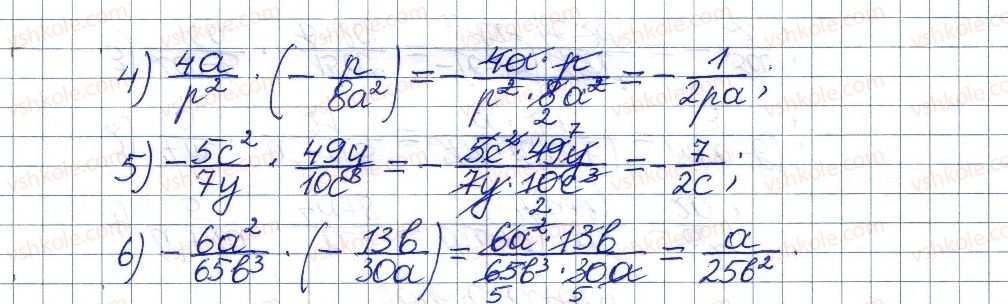 4) 4a/p² · (− p/8a²) = − 4a · p/p² · 8a² 2 = − 1/2pa;
5) − 5c²/7y · 49y/10c³ = − 5c² · 49y 7/7y · 10c³ 2 = − 7/2c;
6) − 6a²/65b³ · (− 13b/30a) = 6a² · 13b/65b³ · 30a 5 5 = a/25b²